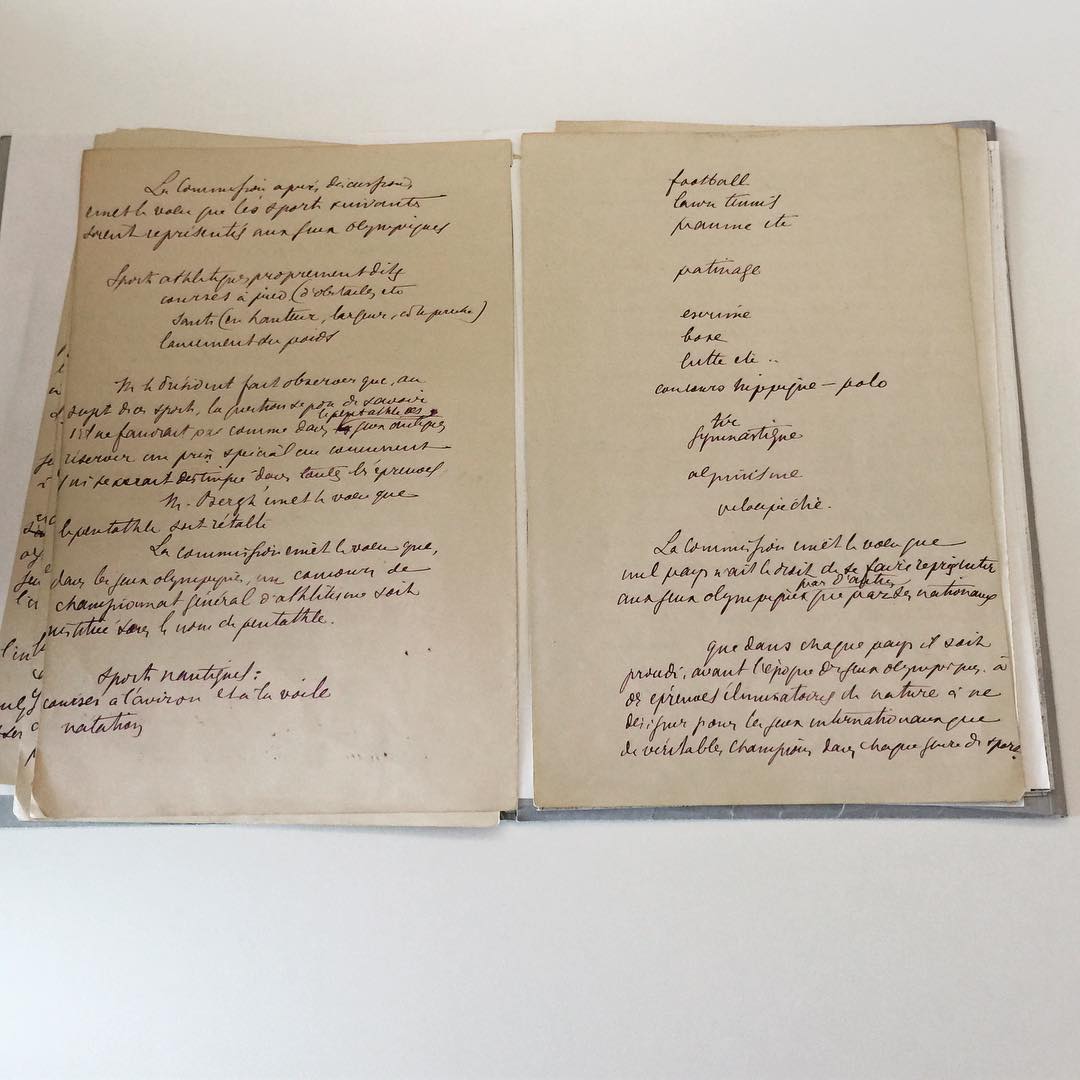 La Commission après discussion,
émet le voeu que les sports suivants
soient représentés aux Jeux olympiques
Sports athlétiques proprement dits
courses à pied (d'obstacles, etc
Sauts (en hauteur, largeur, à la perche)
lancement du poids
M. le Président fait observer que, au
sujet de ces sports, la question se pose de savoir
s'il ne faudrait pas comme dans le pentathle des jeux antiques
réserver un prix spécial au concurrent
qui se serait distingué dans toutes les épreuves
M. Bergh émet le voeu que
le pentathle soit rétabli
La commission émet le voeu que,
dans les jeux olympiques, un concours de
championnat général d'athlétisme soit
institué sous le nom de pentathle.
Sports nautiques:
courses à l'aviron et à la voile
natation
football
lawn tennis
paume etc
patinage
escrime
boxe
lutte etc..
concours hippique - polo
tir
gymnastique
alpinisme
vélocipédie.
La Commission émet le voeu que
nul pays n'ait le droit de se faire représenter
aux jeux olympiques par d'autres que par ses nationaux
que dans chaque pays il soit
procédé, avant l'époque des jeux olympiques, à
des épreuves éliminatoires de nature à ne
désigner pour les jeux internationaux que
de véritables champions dans chaque genre de sport.